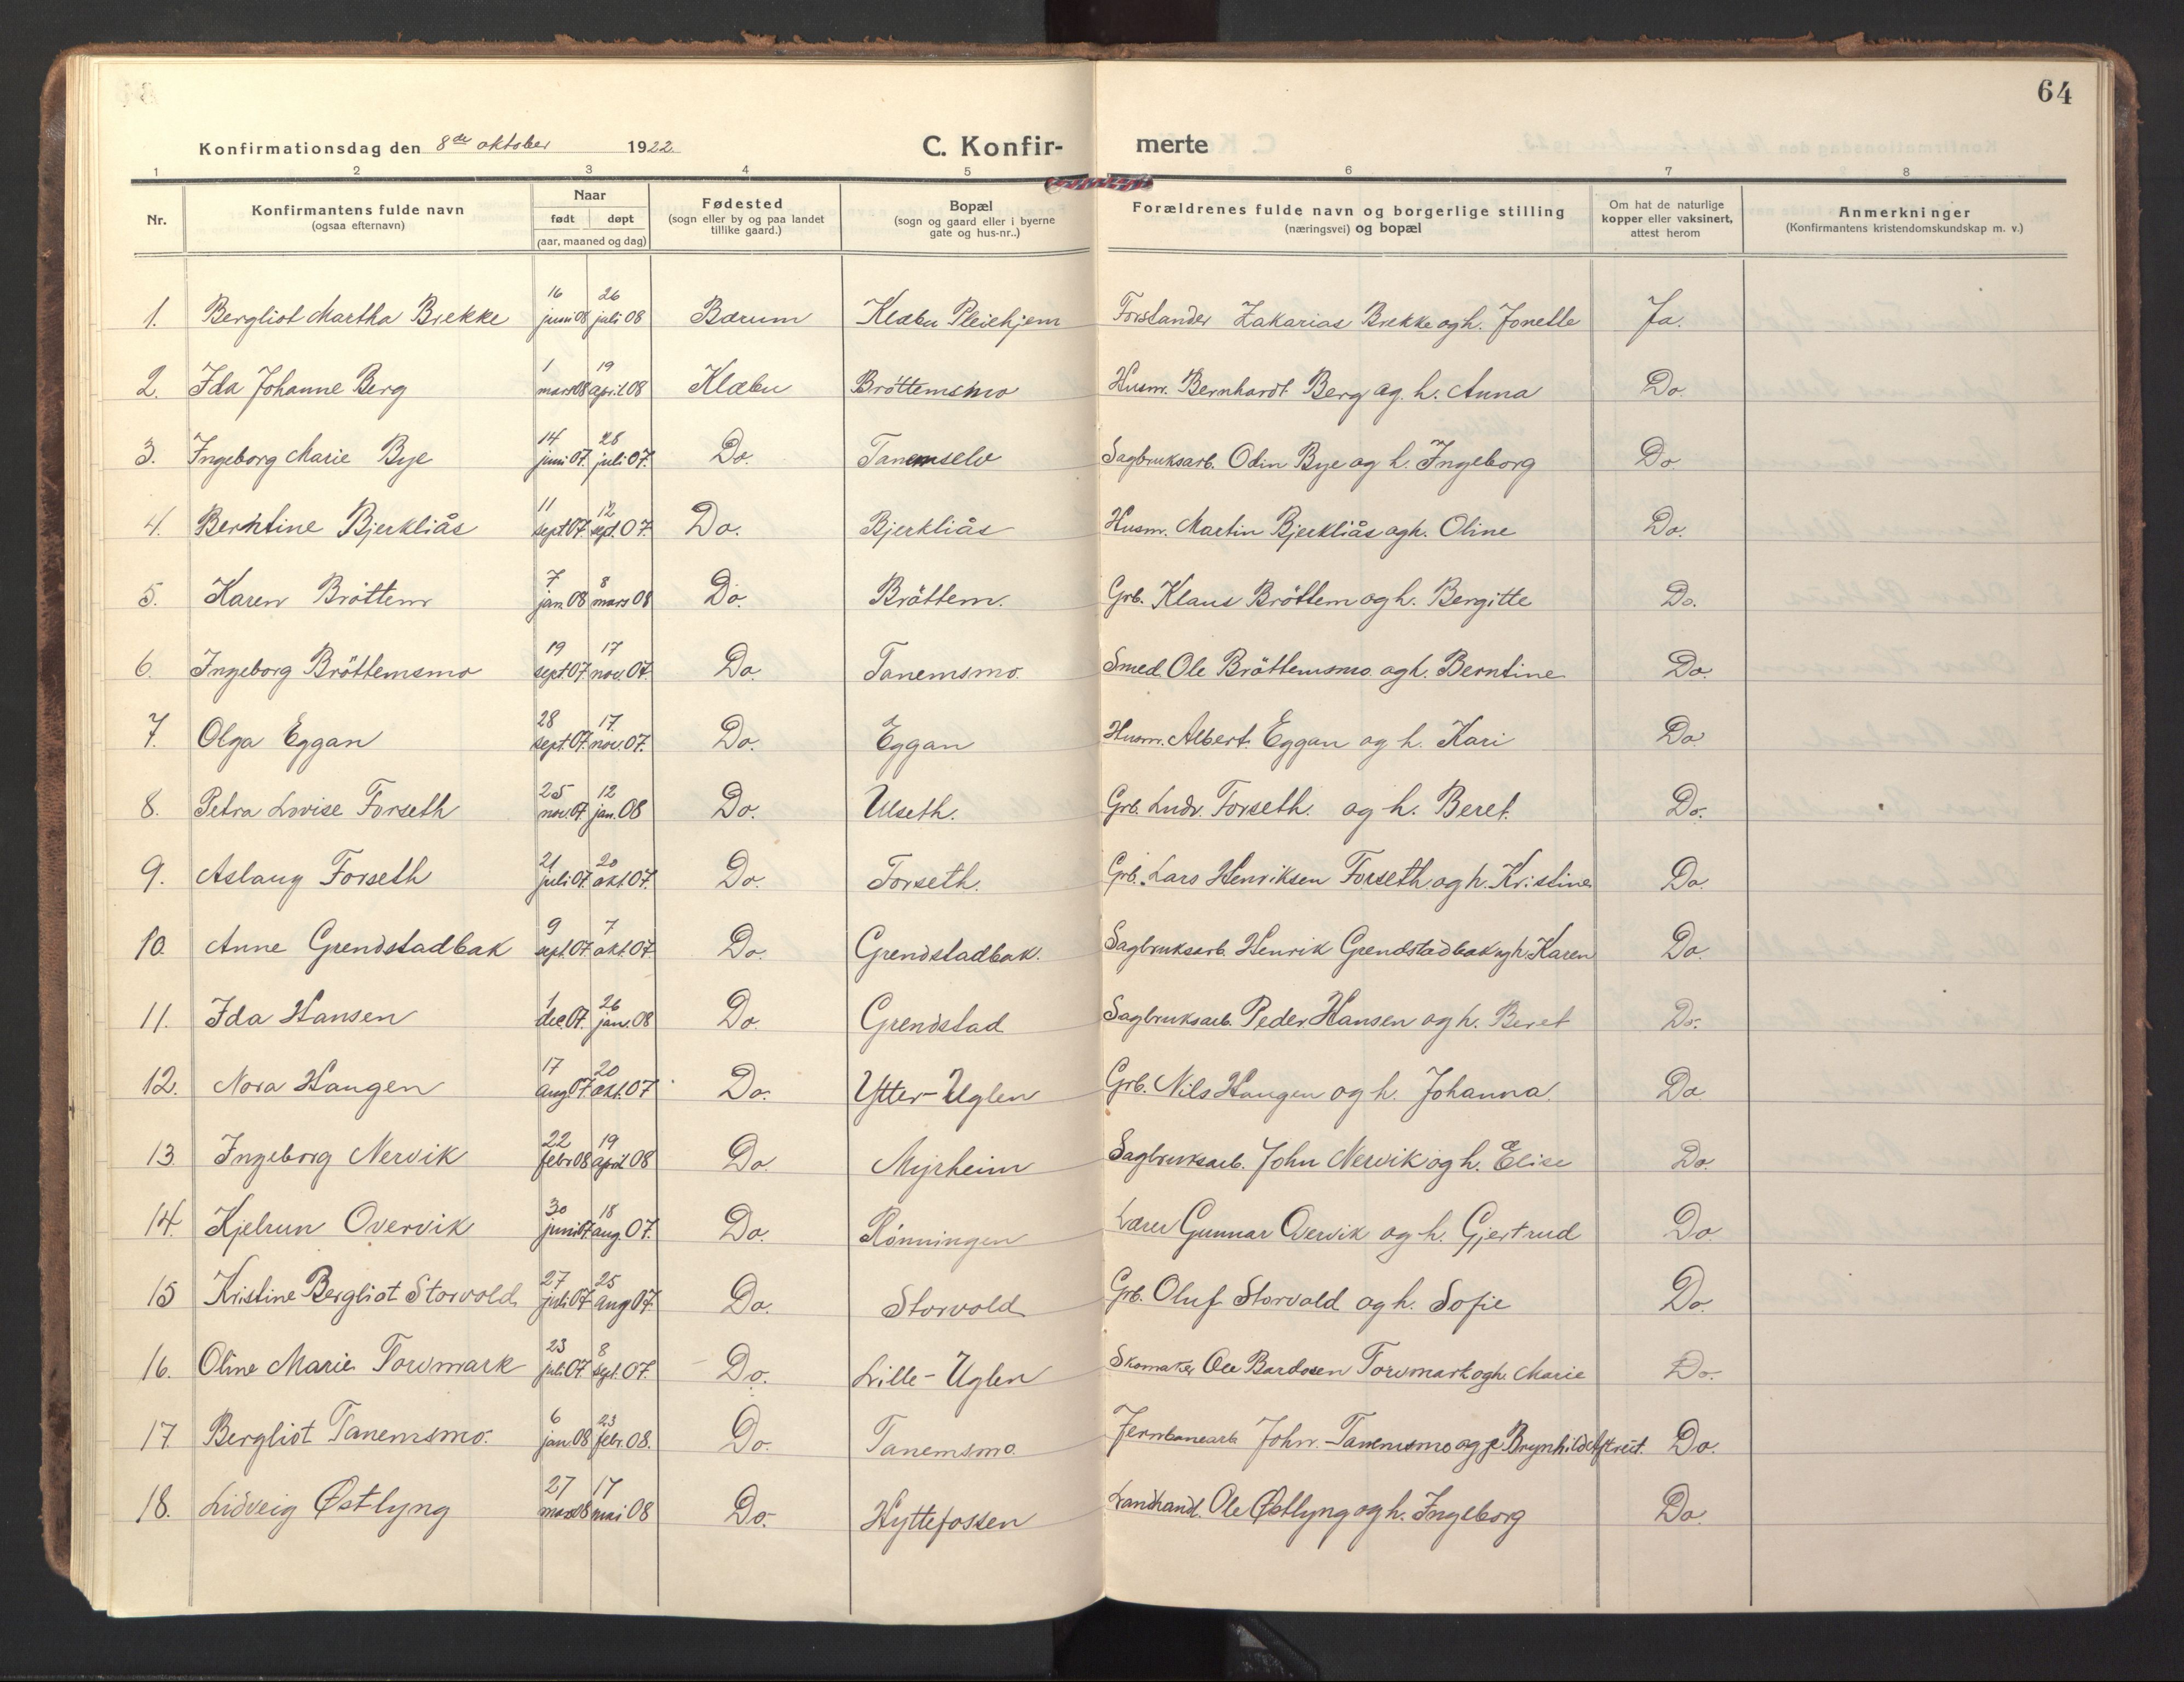 64
Konfirmationsdag den 8de oktober 1922 C. Konfir- merte
1 2 3 4 5 6 7 8
Nr. Konfirmantens fulde navn (ogsaa efternavn) Naar født døpt (aar, maaned og dag) Fødested (sogn eller by og paa landet tillike gaard.) Bopæl (sogn og gaard eller i byerne gate og hus-nr..) Forældrenes fulde navn og borgerlige stilling (næringsvei) og bopæl Om hat de naturlige kopper eller vaksinert, attest herom Anmerkninger (Konfirmantens kristendomskundskap m. v.)
1. Bergliot Martha Brekke 16 juni 08 26 juli 08 Bærum Klæbu Pleiehjem Forstander Zakarias Brekke og h. Jonette Ja.
2. Ida Johanne Berg 1 mars 08 19 april 08 Klæbu Bröttemsmo Husm. Bernhardt Berg og h. Anna Do.
3. Ingeborg Marie Bye 14 juni 07. 28 juli 07. Do. Tanemselv Sagbruksarb. Odin Bye og h. Ingeborg Do.
4. Berntine Bjerkliås 11 sept. 07. 12 sept. 07. Do. Bjerkliås Husm. Martin Bjerkliås og h. Oline Do.
5. Karen Bröttem 7 jan 08 8 mars 08 Do. Bröttem. Grb. Klaus Bröttem og h. Bergitte Do.
6. Ingeborg Bröttemsmo 19 sept. 07 17 nov. 07. Do. Tanemsmo. Smed Ole Bröttemsmo og h. Berntine Do.
7. Olga Eggan 28 sept. 07. 17 nov. 07. Do. Eggan Husm. Albert Eggan og h. Kari Do.
8. Petra Lovise Forseth 25 nov. 07 12 jan. 08 Do. Ulseth. Grb. Ludv. Forseth. og h. Beret. Do.
9. Aslaug Forseth 21 juli 07. 20 okt. 07. Do. Forseth. Grb. Lars Henriksen Forseth og h. Kristine Do.
10. Anne Grendstadbak 9 sept. 07. 7 okt. 07. Do. Grendstadbak. Sagbruksarb. Henrik Grendstadbak og h. Karen Do.
11. Ida Hansen 1 dec. 07. 26 jan. 08 Do. Grendstad Sagbruksarb. Peder Hansen og h. Beret Do.
12. Nora Haugen 17 aug 07. 20 okt. 07 Do. Ytter-Uglen Grb. Nils Haugen og h. Johanna. Do.
13. Ingeborg Nervik 22 febr 08 19 april 08 Do. Myrheim Sagbruksarb. John Nervik og h. Elise Do.
14. Kjelrun Overvik 30 juni 07. 18 aug. 07. Do. Rönningen Lærer Gunnar Overvik og h. Gjertrud Do.
15 Kristine Bergliot Storvold 27 juli 07 25 aug 07. Do. Storvold Grb. Oluf Storvold og h. Sofie Do.
16. Oline Marie Torvmark 23 juli 07 8 sept. 07. Do. Lille-Uglen Skomaker Ole Bardosen Torvmark og h. Marie Do.
17. Bergliot Tanemsmo. 6 jan. 08 23 febr. 08. Do. Tanemsmo. Jernbanearb John Tanemsmo og Brynhild Do.
18. Lidveig Østlyng 27 mars 08 17 mai 08 Do. Hyttefossen Landhand. Ole Østlyng og h. Ingeborg Do.